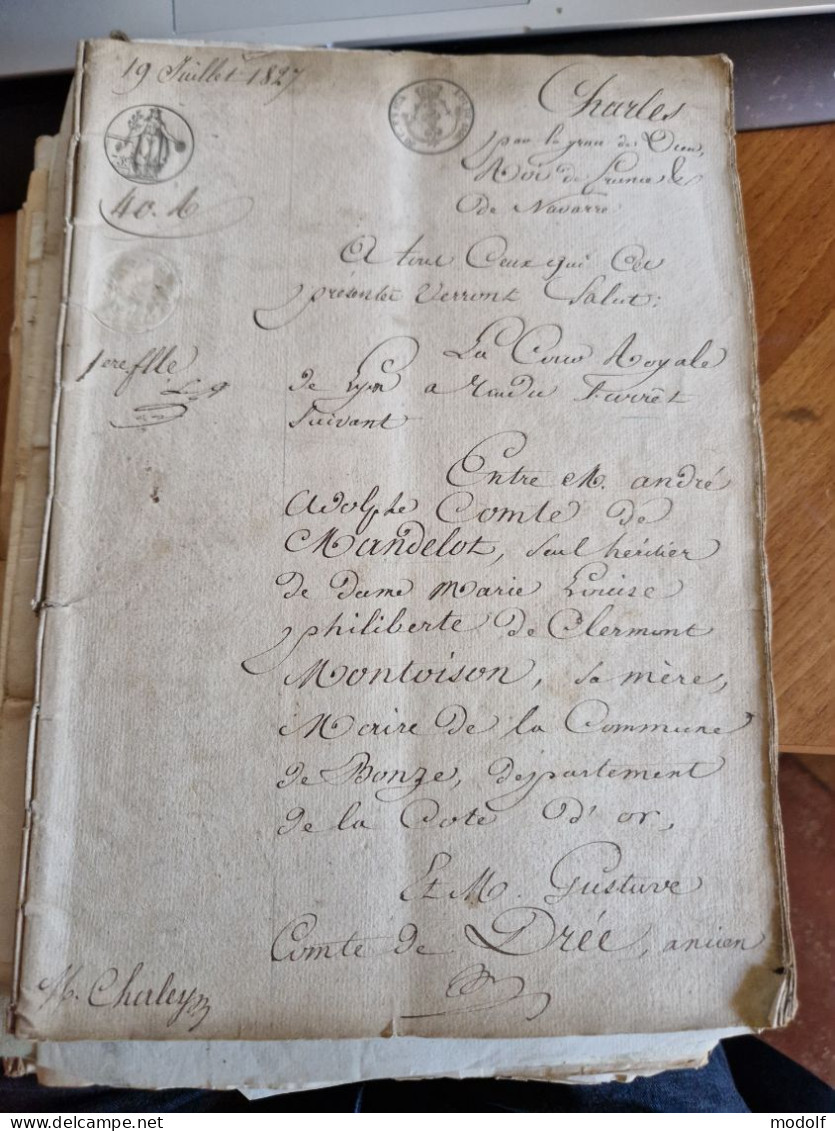 19 Juillet 1827
Charles
par la grace de Dieu,
Roi de France &
de Navarre
40. c
A tous Ceux qui Ces
présentes Verront Salut:
1ere flle
La Cour Royale
de Lyon a Rendu l'arrêt
Suivant
Entre M. andré
Adolphe Comte de
Mandelot, seul héritier
de dame Marie Louise
philiberte de Clermont
Montoison, sa mère,
Maire de la Commune
de Bonze, département
de la Cote d'or,
Et M. Gustave
Comte de Drée, ancien
M. Charley
www.delcampe.net
modolf